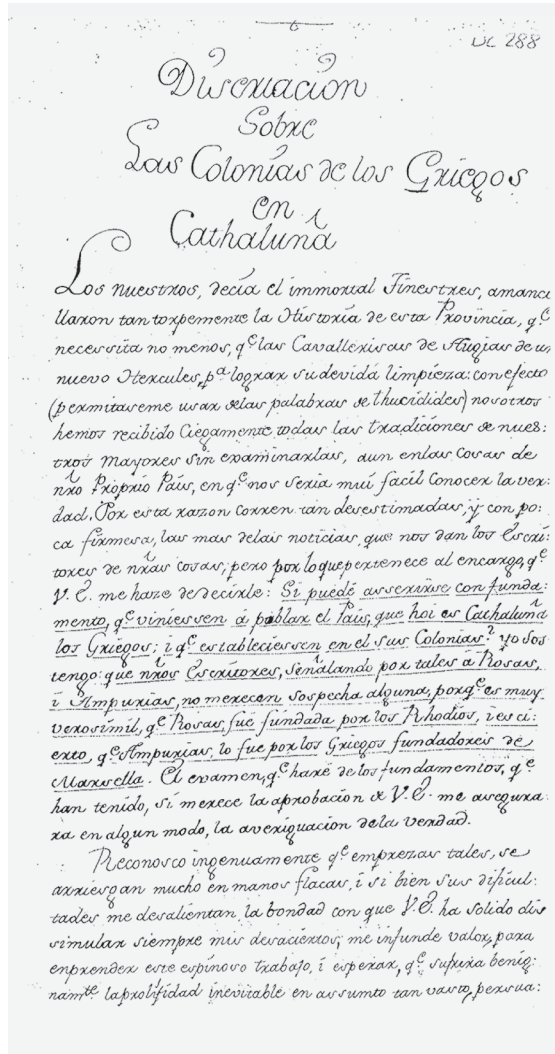 6
DL 288
Disertacion
Sobre
Las Colonias de los Griegos
en
Cathaluña
Los nuestros, decia el immortal Finestres, amanci
llaron tan torpemente la Historia de esta Provincia, q.e
necessita no menos, q.e las Cavallerisas de Augias de un
nuevo Hercules, p.a lograr su devida limpieza: con efecto
(permitaseme usar de las palabras de thucidides) nosotros
hemos recibido ciegamente todas las tradiciones de nues:
tros Mayores sin examinarlas, aun en las cosas de
nro Proprio País, en q.e nos seria mui facil conocer la ver:
dad. Por esta razon corren tan desestimadas, y con po:
ca firmesa, las mas de las noticias, que nos dan los Escri:
tores de nras cosas; pero por lo que pertenece al encargo, q.e
V. E. me haze de decirle: Si puede asserirse con funda:
mento, q.e viniessen á poblar el País, que hoi es Cathaluña
los Griegos; i q.e estableciessen en el sus Colonias? yo sos
tengo: que nros Escritores, señalando por tales á Rosas,
i Ampurias, no merecen sospecha alguna, porq.e es muy
verosimil, q.e Rosas, fue fundada por los Rhodios, i es ci:
erto, q.e Ampurias, lo fue por los Griegos fundadores de
Marsella. El examen, q.e haré de los fundamentos, q.e
han tenido, si merece la aprobacion de V. E. me asegura:
ra en algun modo, la averiguacion de la verdad.
Reconosco ingenuamente q.e emprezas tales, se
arriesgan mucho en manos flacas, i si bien sus dificul:
tades me desalientan, la bondad con que V. E. ha solido dis
simular siempre mis desaciertos, me infunde valor, para
enprender este espinoso trabajo, i esperar, q.e sufrira benig:
nam.te la prolifidad inevitable en assumto tan vasto, persua: